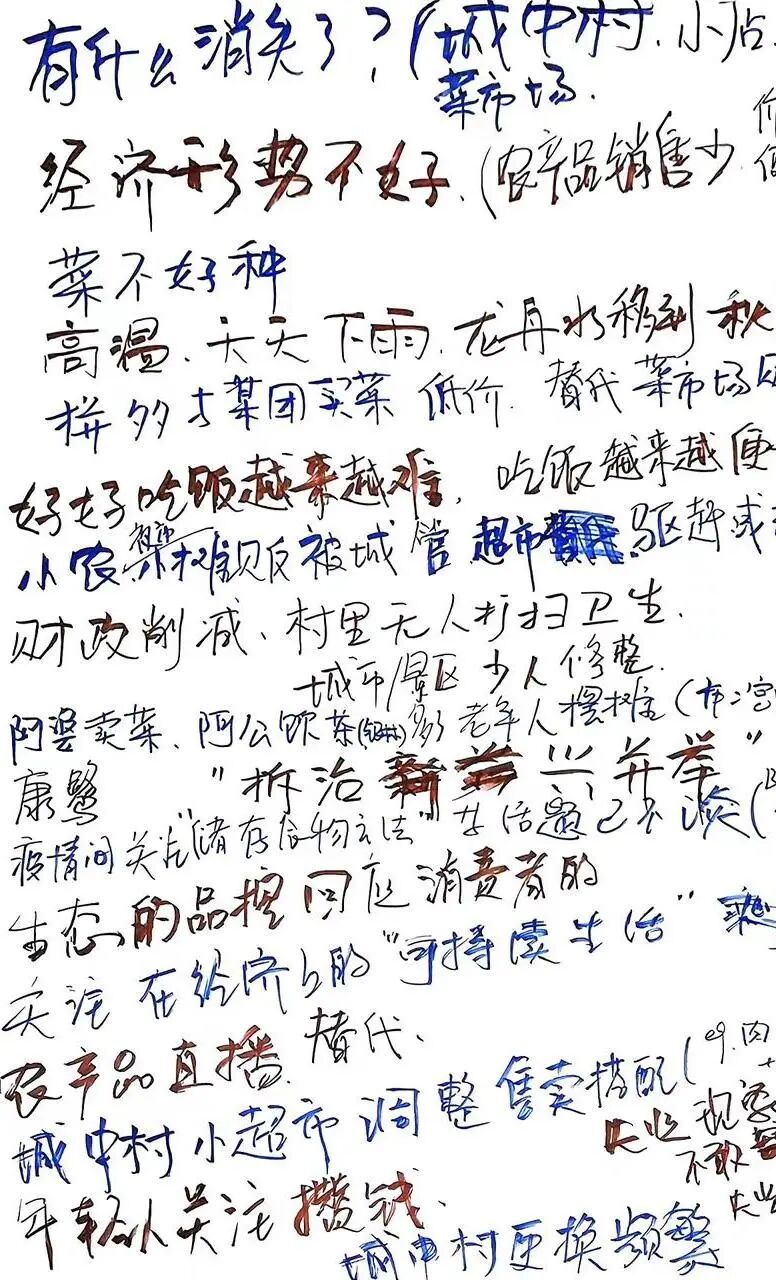 有什么消失了？（城中村.小店.
菜市场.
经济形势不好.（农产品销售少
菜不好种
高温.天天下雨.龙舟水移到秋
拼多多某团买菜 低价.替代菜市场
好好吃饭越来越难.吃饭越来越便
小农摆摊贩被城管 超市替代.驱赶或
财政削减、村里无人打扫卫生.
城市/景区少人修整.
阿婆卖菜、阿公饮茶 老年人摆摊（
康鹭 "拆治兴并举"
疫情间关注"储存食物方法" 生活题已不谈（
生态的品控回应消费者的
关注在经济上的"可持续生活"
农产品直播.替代、
城中村小超市调整售卖搭配（eg.肉+
失业现
不敢
失业
年轻人关注攒钱、
城中村更换频繁